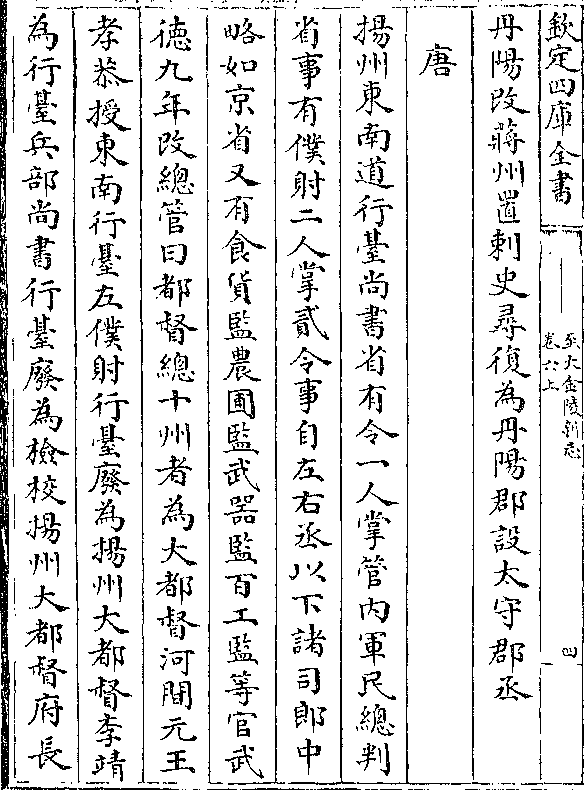 欽定四庫全書
至大金陵新志
卷六上
四
丹陽改蔣州置刺史尋復為丹陽郡設太守郡丞
唐
揚州東南道行臺尚書省有令一人掌管内軍民總判
省事有僕射二人掌貳令事自左右丞以下諸司郎中
略如京省又有食貨監農圃監武器監百工監等官武
徳九年改總管曰都督總十州者為大都督河間元王
孝恭授東南行臺左僕射行臺廢為揚州大都督李靖
為行臺兵部尚書行臺廢為檢校揚州大都督府長